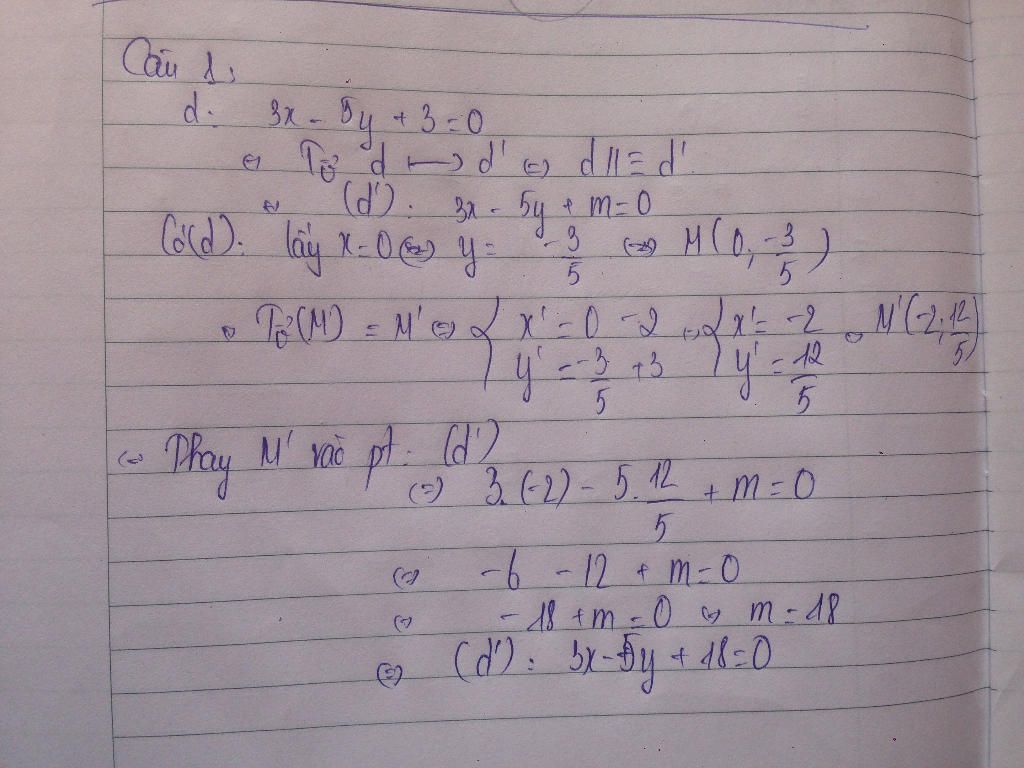 Câu 1,
d: 3x - 5y + 3 = 0
⇔ Tv⃗ d ⟼ d' ⇔ d // ≡ d'
⇔ (d'): 3x - 5y + m = 0
Có (d): lấy x = 0 ⇔ y = -3/5 ⇔ M(0; -3/5)
⇔ Tv⃗(M) = M' ⇔ { x' = 0 - 2 ; y' = -3/5 + 3 ⇔ { x' = -2 ; y' = 12/5 ⇔ M'(-2; 12/5)
⇔ Thay M' vào pt: (d')
⇔ 3.(-2) - 5.12/5 + m = 0
⇔ -6 - 12 + m = 0
⇔ -18 + m = 0 ⇔ m = 18
⇔ (d'): 3x - 5y + 18 = 0